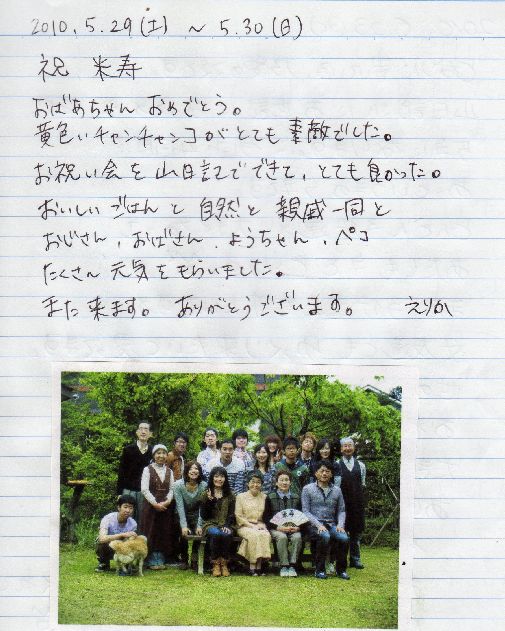 2010. 5.29(土) ~ 5.30(日)
祝 米寿
おばあちゃん おめでとう。
黄色いチャンチャンコがとても 素敵でした。
お祝い会を 山日記でできて、とても良かった。
おいしい ごはんと 自然と 親戚一同と
おじさん、おばさん、ようちゃん、ペコ
たくさん 元気をもらいました。
また 来ます。 ありがとうございます。 えりか